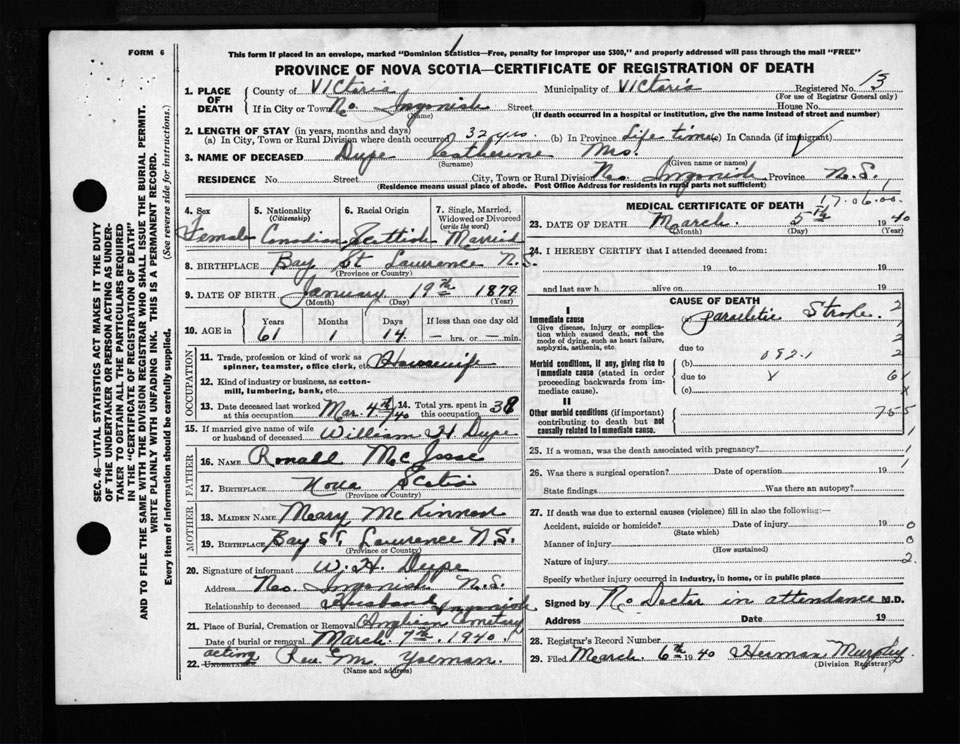 FORM 6
1
This form if placed in an envelope, marked "Dominion Statistics—Free, penalty for improper use $300," and properly addressed will pass through the mail "FREE"
PROVINCE OF NOVA SCOTIA—CERTIFICATE OF REGISTRATION OF DEATH
1. PLACE OF DEATH
County of Victoria Municipality of Victoria Registered No. 13
(For use of Registrar General only)
If in City or Town No. Ingonish Street House No.
(Name) (If death occurred in a hospital or institution, give the name instead of street and number)
2. LENGTH OF STAY (in years, months and days)
(a) In City, Town or Rural Division where death occurred 32 yrs. (b) In Province Life time (c) In Canada (if immigrant)
3. NAME OF DECEASED Dupe Catherine Mrs.
(Surname) (Given name or names)
RESIDENCE No. Street City, Town or Rural Division No. Ingonish Province N.S.
(Residence means usual place of abode. Post Office Address for residents in rural parts not sufficient)
4. Sex 5. Nationality 6. Racial Origin 7. Single, Married, Widowed or Divorced
(Citizenship) (write the word)
Female Canadian Scottish Married
8. BIRTHPLACE Bay St Lawrence N.S.
(Province or Country)
9. DATE OF BIRTH January 19th 1879
(Month) (Day) (Year)
10. AGE in Years Months Days If less than one day old
61 1 14 – hrs. or – min.
OCCUPATION
11. Trade, profession or kind of work as spinner, teamster, office clerk, etc. Housewife
12. Kind of industry or business, as cotton-mill, lumbering, bank, etc.
13. Date deceased last worked at this occupation Mar. 4th/40 14. Total yrs. spent in this occupation 38
15. If married give name of wife or husband of deceased William H Dupe
FATHER
16. NAME Ronald
17. BIRTHPLACE Nova Scotia
(Province or Country)
MOTHER
18. MAIDEN NAME Mary McKinnon
19. BIRTHPLACE Bay St. Lawrence N.S.
(Province or Country)
20. Signature of informant W. H. Dupe
Address No. Ingonish N.S.
Relationship to deceased Husband
Ingonish
21. Place of Burial, Cremation or Removal Anglican Cemetary
Date of burial or removal March 7th 1940
acting
22. UNDERTAKER Rev. E. M. Yoeman.
(Name and address)
MEDICAL CERTIFICATE OF DEATH
17.06.00.
23. DATE OF DEATH March 5th 1940
(Month) (Day) (Year)
24. I HEREBY CERTIFY that I attended deceased from:
19 to 19
and last saw h alive on 19
CAUSE OF DEATH
I
Immediate cause Paraletic Stroke.
Give disease, injury or complication which caused death, not the mode of dying, such as heart failure, asphyxia, asthenia, etc.
due to
Morbid conditions, if any, giving rise to immediate cause (stated in order proceeding backwards from immediate cause).
(b)
due to
(c)
II
Other morbid conditions (if important) contributing to death but not causally related to immediate cause.
25. If a woman, was the death associated with pregnancy?
26. Was there a surgical operation? Date of operation 19
State findings Was there an autopsy?
27. If death was due to external causes (violence) fill in also the following:—
Accident, suicide or homicide? Date of injury 19
(State which)
Manner of injury
(How sustained)
Nature of injury
Specify whether injury occurred in industry, in home, or in public place
Signed by No Doctor in attendance M.D.
Address Date 19
28. Registrar's Record Number
29. Filed March 6th 1940 Herman Murphy
(Division Registrar)
SEC. 46—VITAL STATISTICS ACT MAKES IT THE DUTY
OF THE UNDERTAKER OR PERSON ACTING AS UNDER-
TAKER TO OBTAIN ALL THE PARTICULARS REQUIRED
IN THE "CERTIFICATE OF REGISTRATION OF DEATH"
AND TO FILE THE SAME WITH THE DIVISION REGISTRAR WHO SHALL ISSUE THE BURIAL PERMIT.
WRITE PLAINLY WITH UNFADING INK. THIS IS A PERMANENT RECORD.
Every item of information should be carefully supplied. (See reverse side for instructions.)